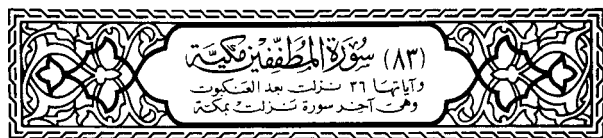 (٨٣) سُورَة المطَفّفِين مَكيّة
وآياتها ٣٦ نزلت بعد العنكبوت
وهي آخر سورة نزلت بمكة